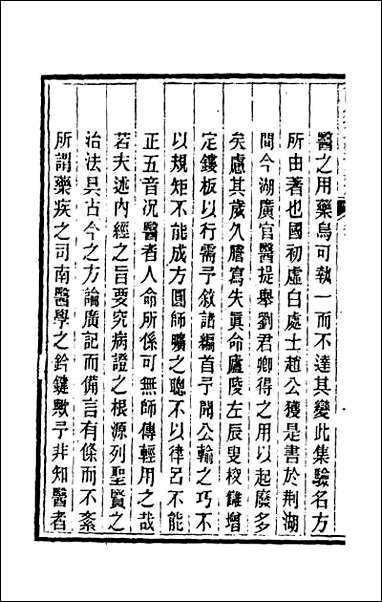 醫之用藥烏可執一而不達其變此集驗名方
所由著也國初虛白處士趙公獲是書於荆湖
間今湖廣官醫提舉劉君卿得之用以起廢多
矣慮其歲久謄寫失眞命廬陵左辰叟校讎增
定鏤板以行需予敘諸編首予聞公輸之巧不
以規矩不能成方圓師曠之聰不以律呂不能
正五音況醫者人命所係可無師傳輕用之哉
若夫述内經之旨要究病證之根源列聖賢之
治法具古今之方論廣記而備言有條而不紊
所謂藥疾之司南醫學之鈐鍵歟予非知醫者